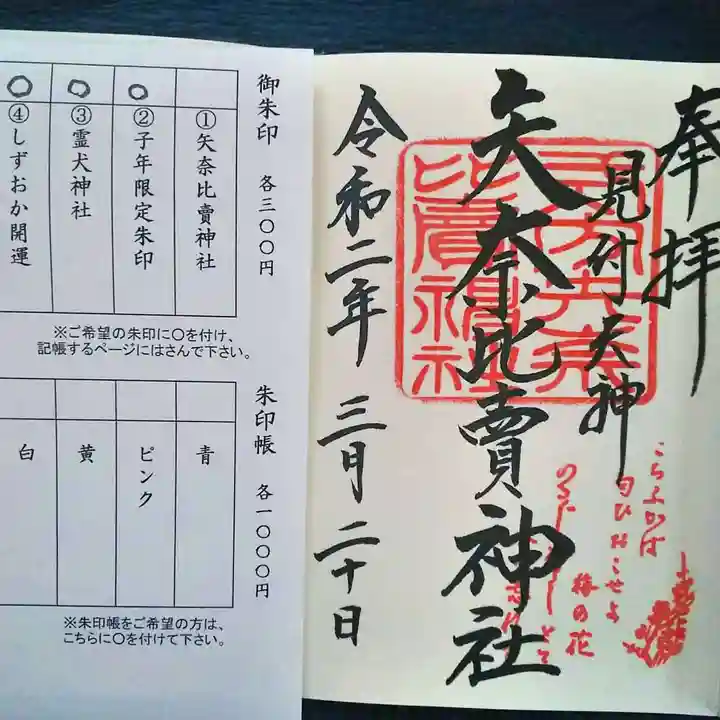 奉拝
見付天神
矢奈比賣神社
令和二年 三月 二十日
こちふかば
匂ひおこせよ
梅の花
御朱印 各三〇〇円
①矢奈比賣神社
〇
②子年限定朱印
〇
③霊犬神社
〇
④しずおか開運
※ご希望の朱印に〇を付け、
記帳するページにはさんで下さい。
朱印帳 各一〇〇〇円
青
ピンク
黄
白
※朱印帳をご希望の方は、
こちらに〇を付けて下さい。